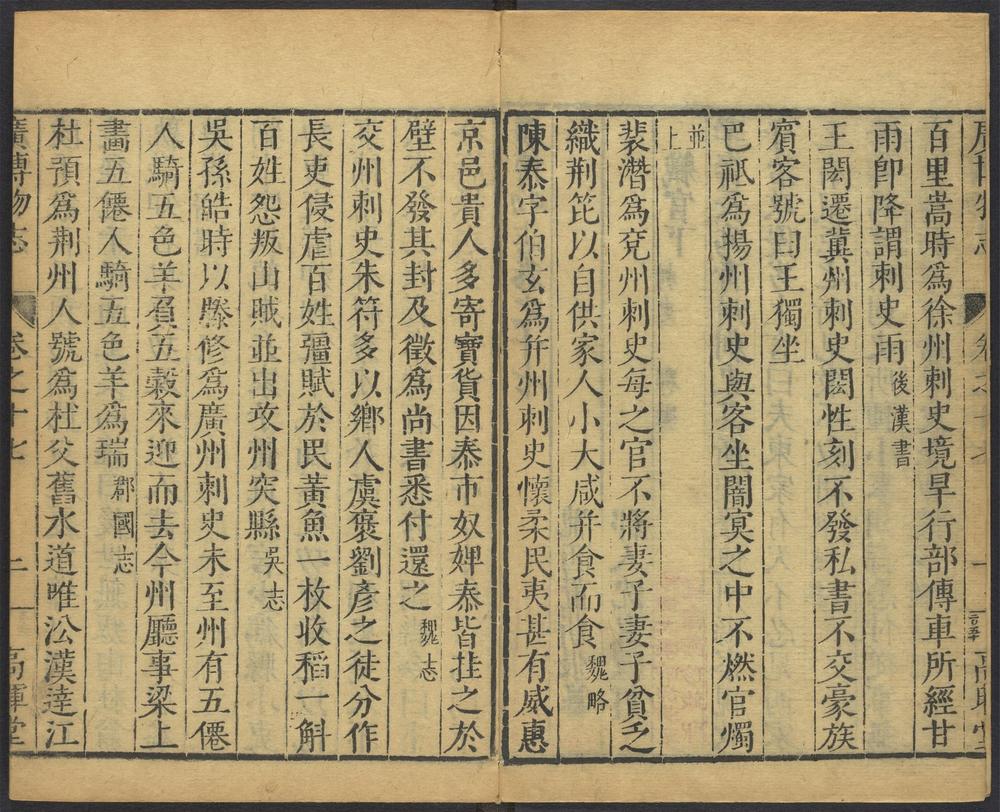 百里嵩時爲徐州刺史境旱行部傳車所經甘
雨卽降謂刺史雨後漢書
王閎遷冀州刺史閎性刻不發私書不交豪族
賓客號曰王獨坐
巴祗爲揚州刺史與客坐闇冥之中不燃官燭
並上
裴潛爲兗州刺史每之官不將妻子妻子貧乏
織荆笓以自供家人小大咸并食而食魏略
陳泰字伯玄爲并州刺史懷柔民夷甚有威惠
京邑貴人多寄寶貨因泰市奴婢泰皆挂之於
壁不發其封及徵爲尚書悉付還之魏志
交州刺史朱符多以鄉人虞褒劉彥之徒分作
長吏侵虐百姓彊賦於民黃魚一枚收稻一斛
百姓怨叛山賊並出攻州突縣吳志
吳孫皓時以滕修爲廣州刺史未至州有五僊
人騎五色羊負五穀來迎而去今州廳事梁上
畫五僊人騎五色羊爲瑞郡國志
杜預爲荆州人號爲杜父舊水道唯沿漢達江
廣博物志 卷之十七 二 高暉堂